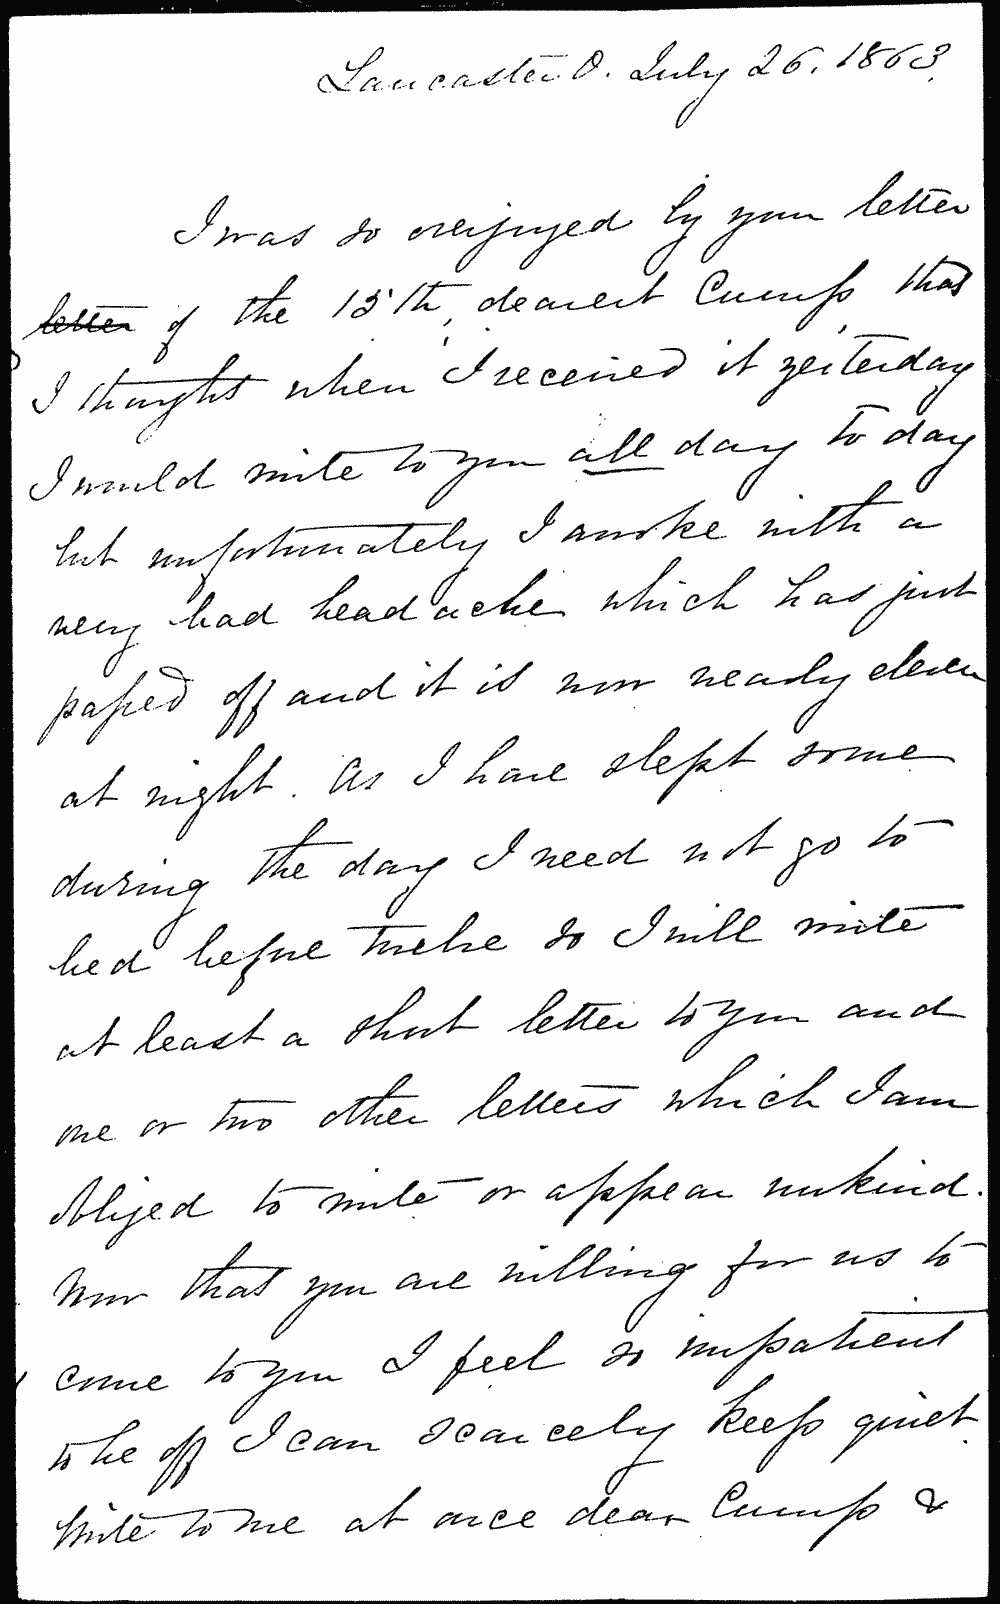 Lancaster O. July 26, 1863.
I was so overjoyed by your letter
letter of the 15th, dearest Cump, that
I thought when I received it yesterday
I would write to you all day to day
but unfortunately I awoke with a
very bad headache which has just
passed off and it is now nearly eleven
at night. As I have slept some
during the day I need not go to
bed before twelve so I will write
at least a short letter to you and
one or two other letters which I am
obliged to write or appear unkind.
Now that you are willing for us to
come to you I feel so impatient
to be off I can scarcely keep quiet.
Write to me at once dear Cump &